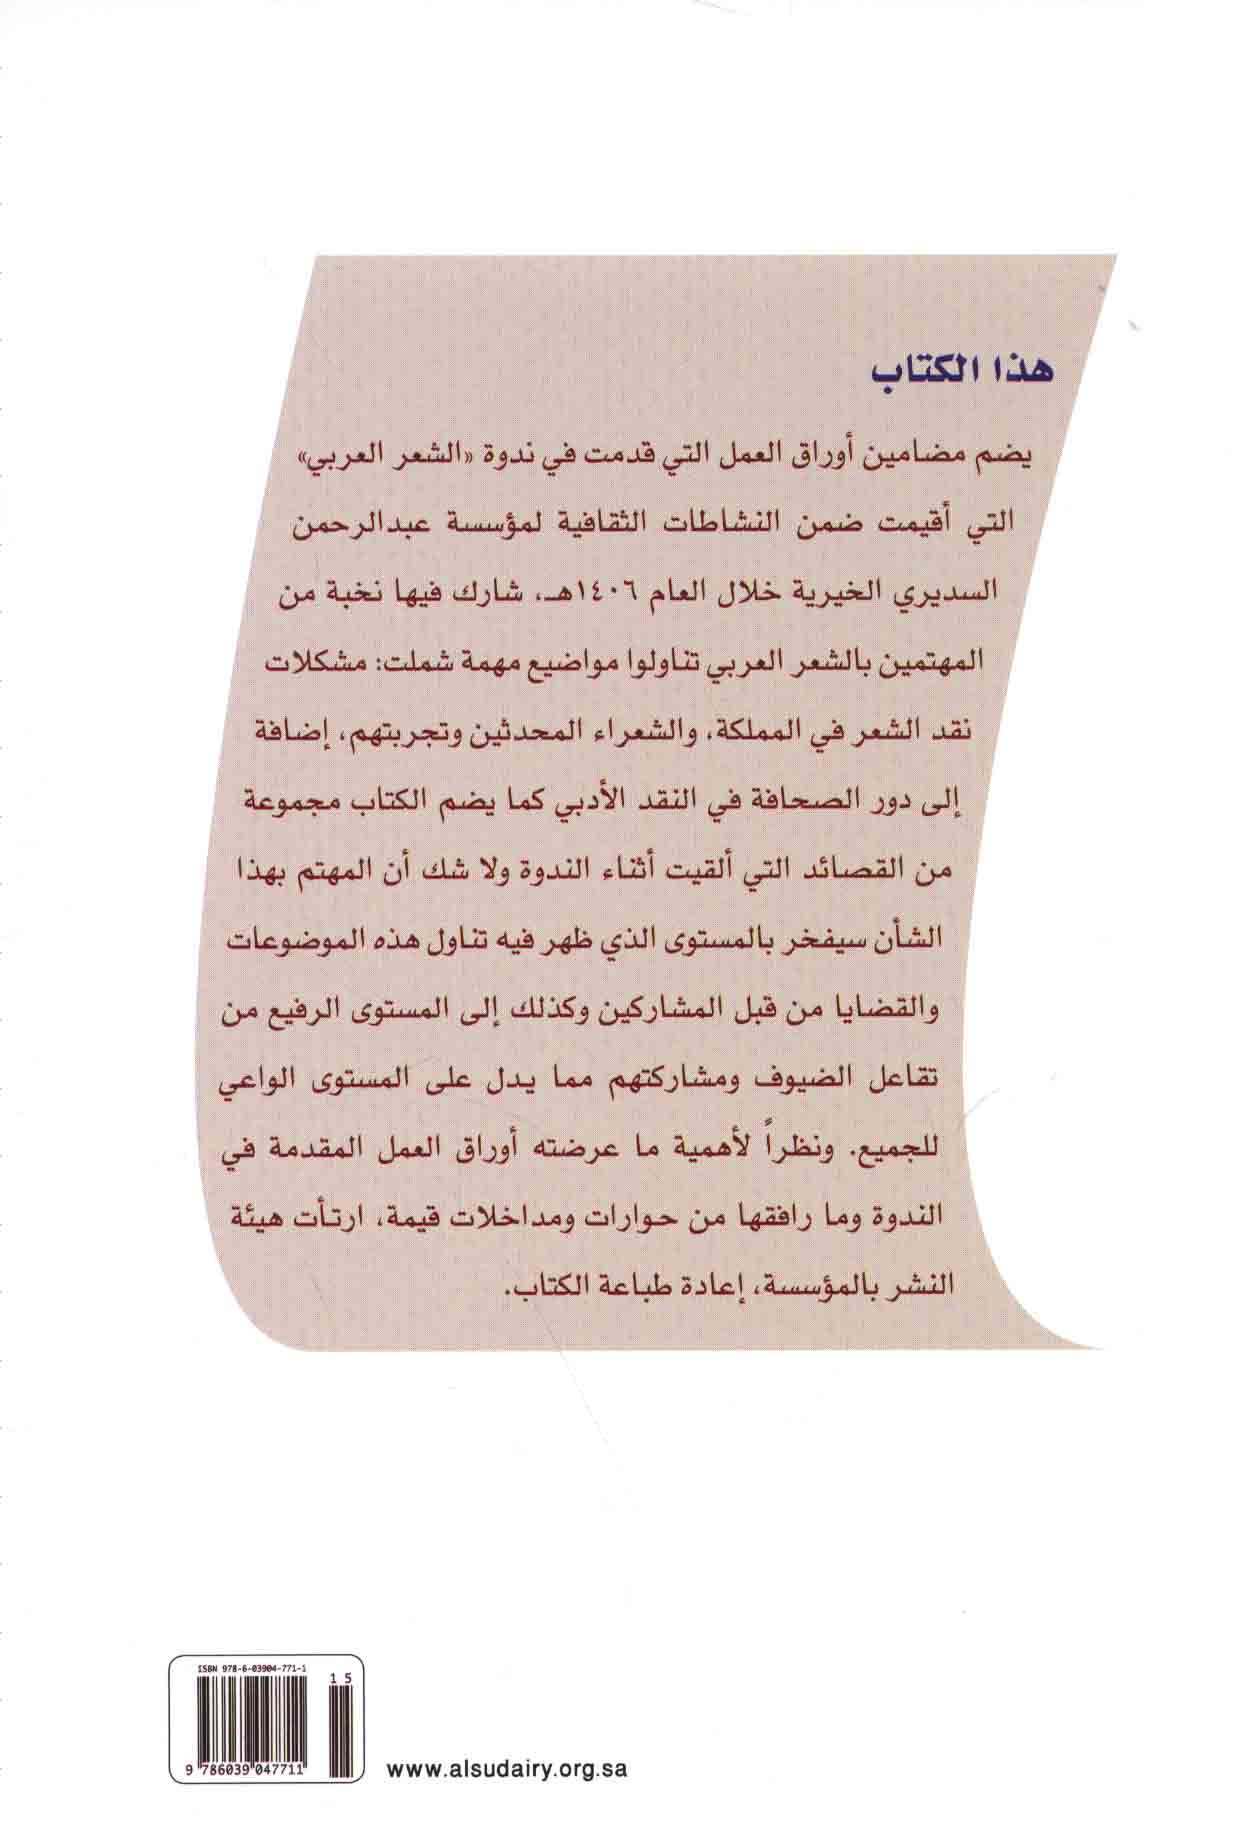 هذا الكتاب
يضم مضامين أوراق العمل التي قدمت في ندوة «الشعر العربي»
التي أقيمت ضمن النشاطات الثقافية لمؤسسة عبدالرحمن
السديري الخيرية خلال العام ١٤٠٦هـ، شارك فيها نخبة من
المهتمين بالشعر العربي تناولوا مواضيع مهمة شملت: مشكلات
نقد الشعر في المملكة، والشعراء المحدثين وتجربتهم، إضافة
إلى دور الصحافة في النقد الأدبي كما يضم الكتاب مجموعة
من القصائد التي ألقيت أثناء الندوة ولا شك أن المهتم بهذا
الشأن سيفخر بالمستوى الذي ظهر فيه تناول هذه الموضوعات
والقضايا من قبل المشاركين وكذلك إلى المستوى الرفيع من
تفاعل الضيوف ومشاركتهم مما يدل على المستوى الواعي
للجميع. ونظراً لأهمية ما عرضته أوراق العمل المقدمة في
الندوة وما رافقها من حوارات ومداخلات قيمة، ارتأت هيئة
النشر بالمؤسسة، إعادة طباعة الكتاب.
ISBN 978-6-03904-771-1
1 5
9 786039 047711
www.alsudairy.org.sa